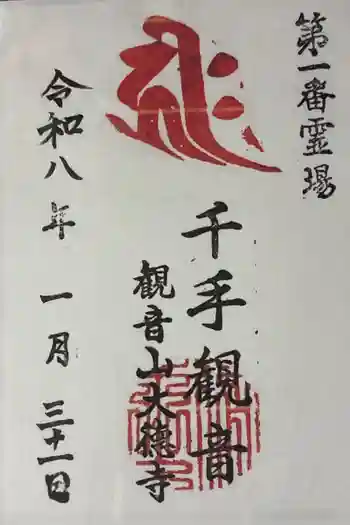 第一番霊場
千手観音
観音山大徳寺
令和八年一月三十一日